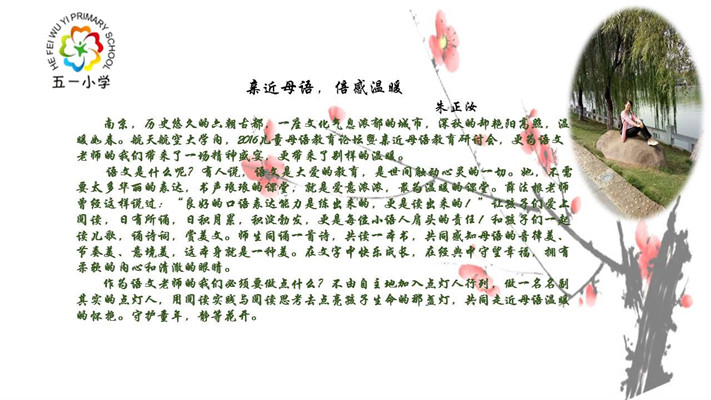 HE FEI WU YI PRIMARY SCHOOL
五一小学
亲近母语，倍感温暖
朱正汝
南京，历史悠久的六朝古都，一座文化气息浓郁的城市，深秋的却艳阳高照，温
暖如春。航天航空大学内，2016儿童母语教育论坛暨亲近母语教育研讨会，更为语文
老师的我们带来了一场精神盛宴，更带来了别样的温暖。
语文是什么呢？有人说，语文是大爱的教育，是世间触动心灵的一切。她，不需
要太多华丽的表达，书声琅琅的课堂，就是爱意浓浓，最为温暖的课堂。薛法根老师
曾经这样说过：“良好的口语表达能力是练出来的，更是读出来的！”让孩子们爱上
阅读，日有所诵，日积月累，积淀勃发，更是每位小语人肩头的责任！和孩子们一起
读儿歌，诵诗词，赏美文。师生同诵一首诗，共读一本书，共同感知母语的音律美、
节奏美、意境美，这本身就是一种美。在文字中快乐成长，在经典中守望幸福，拥有
柔软的内心和清澈的眼睛。
作为语文老师的我们必须要做点什么？不由自主地加入点灯人行列，做一名名副
其实的点灯人，用阅读实践与阅读思考去点亮孩子生命的那盏灯，共同走近母语温暖
的怀抱。守护童年，静等花开。